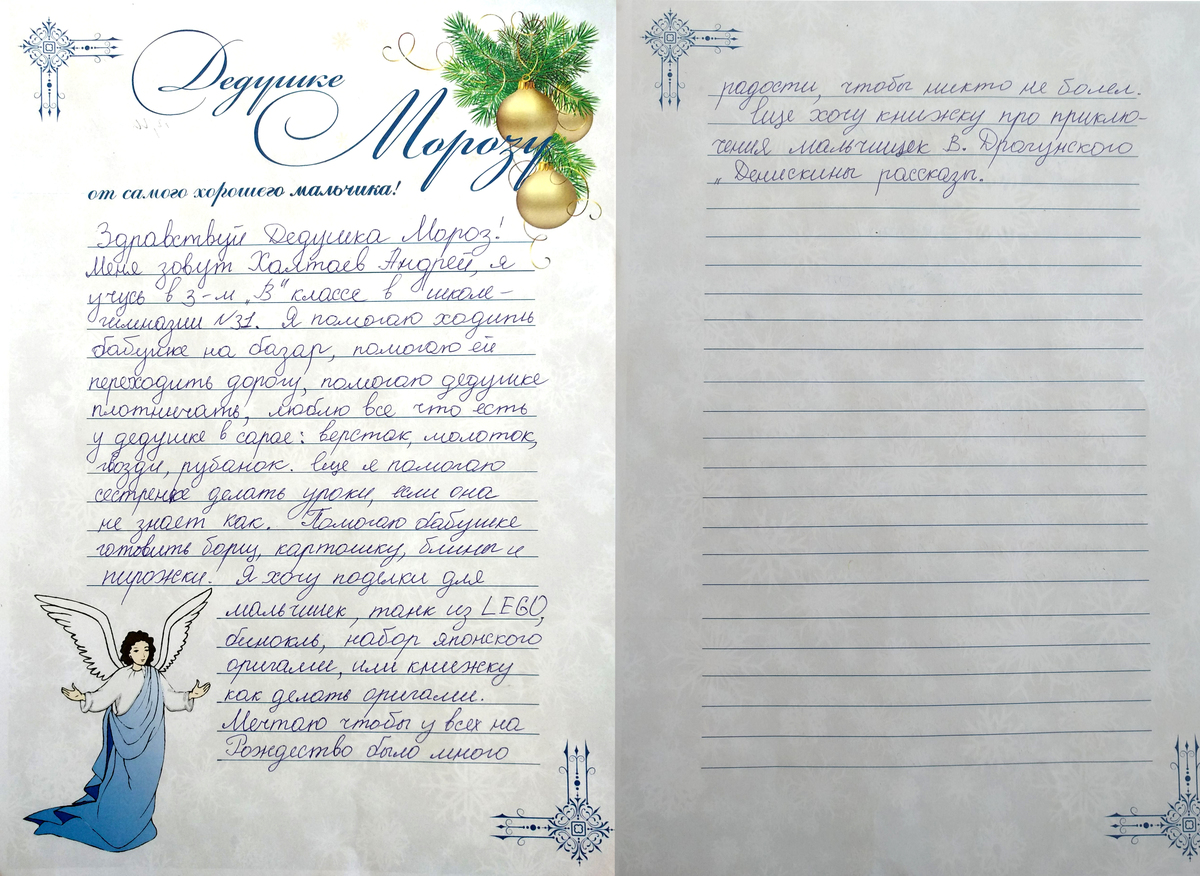 Дедушке
Морозу
от самого хорошего мальчика!
Здравствуй Дедушка Мороз!
Меня зовут Халтаев Андрей, я
учусь в 3-м „В" классе в школе-
гимназии №31. Я помогаю ходить
бабушке на базар, помогаю ей
переходить дорогу, помогаю дедушке
плотничать, люблю все что есть
у дедушке в сарае: верстак, молоток,
гвозди, рубанок. Еще я помогаю
сестренке делать уроки, если она
не знает как. Помогаю бабушке
готовить борщ, картошку, блины и
пирожки. Я хочу поделки для
мальчишек, танк из LEGO,
бинокль, набор японского
оригами, или книжку
как делать оригами.
Мечтаю чтобы у всех на
Рождество было много
радости, чтобы никто не болел.
Еще хочу книжку про приклю-
чения мальчищек В. Драгунского
„Денискины рассказы.